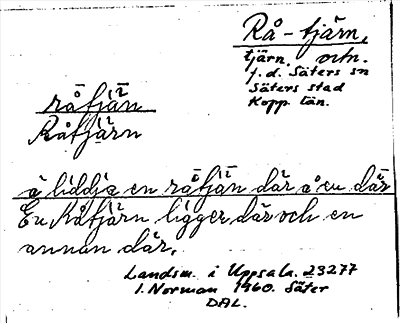 Rå-tjärn,
tjärn. ortn.
f.d. Säters sn
Säters stad
Kopp. län.
råtjän
Råtjärn
å liddjə en råtjän där å en där
En Råtjärn ligger där och en
annan där.
Landsm. i Uppsala. 23277
I. Norman 1960. Säter
DAL.